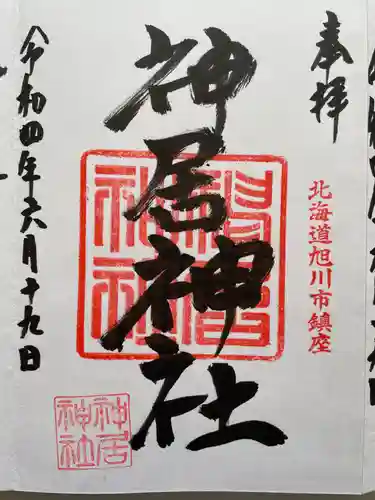 奉拝
北海道旭川市鎮座
神居神社
令和四年六月十九日
神居
神社